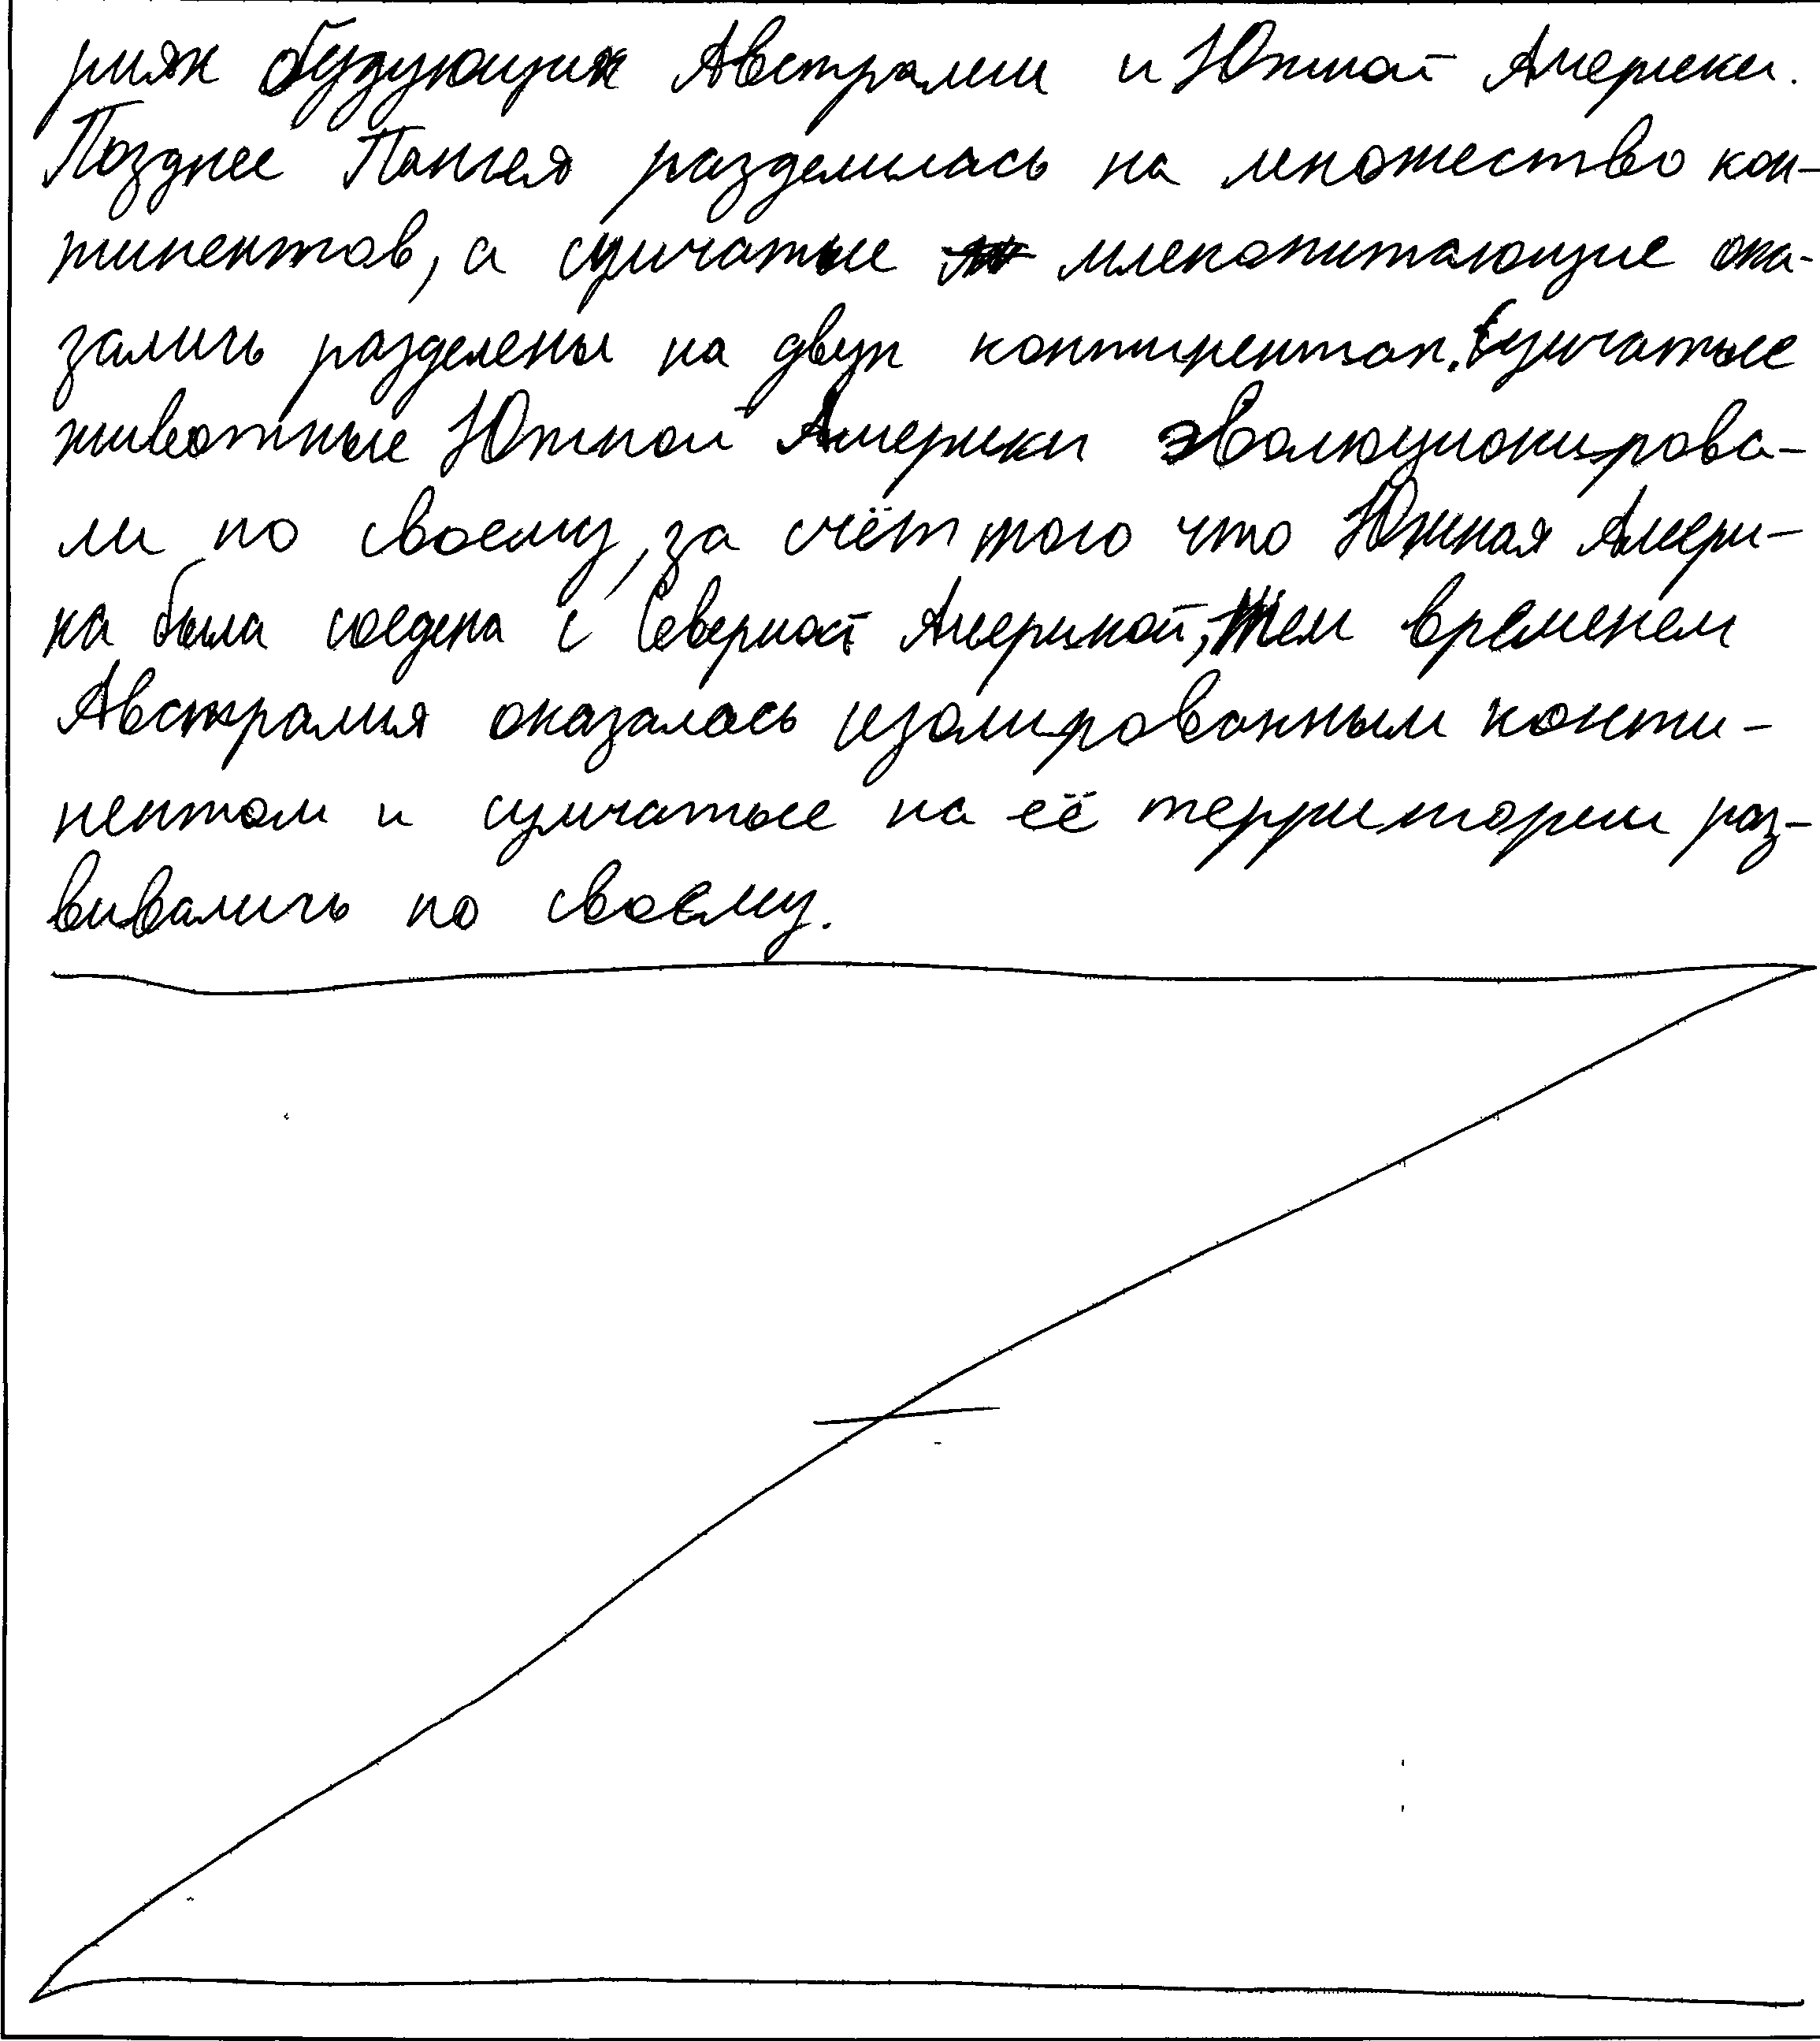 риях будующих Австралии и Южной Америки.
Позднее Пангея разделилась на множество кон-
тинентов, а сумчатые млекопитающие ока-
зались разделены на двух континентах. Сумчатые
животные Южной Америки эволюционирова-
ли по своему, за счёт того что Южная Амери-
ка была соедена с Северной Америкой, тем временем
Австралия оказалась изолированным конти-
нентом и сумчатые на её территории раз-
вивались по своему.